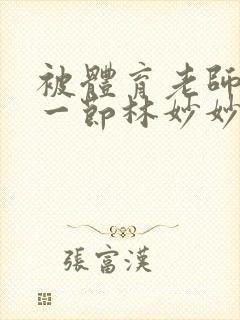 被體育老師
一節林妙妙
張富漢